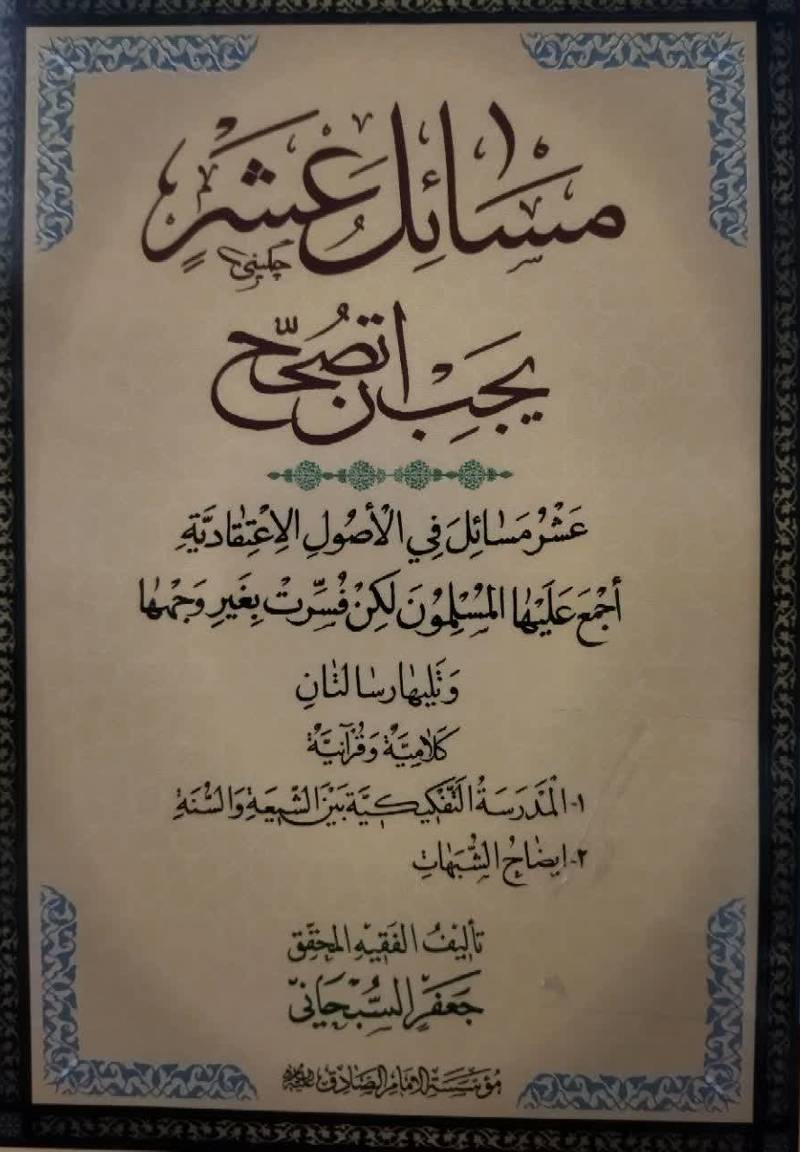 مسَائِل عَشرٍ
يجَبِ ان تصُحّح
عَشْرُ مَسٰائِلَ فِي الْأُصُولِ الِاعْتِقٰادیَّةِ
أجْمَعَ عَلَيْهٰا الْمُسْلِمُونَ لٰكِنْ فُسِّرَتْ بِغَيرِ وَجْهِهٰا
وَتَلِيهٰا رسٰالتٰانِ
كَلٰامِيَّةٌ وَقُرْآنِيَّةٌ
١- الْمَدْرَسَةُ التَّفْكِيكِيَّة بَيْنَ الشِّيعَةِ وَالسُّنَةِ
٢- ايضٰاحُ الشُّبَهٰاتِ
تأليفُ الفَقيهِ المُحَقّق
جَعفَر السُّبْحاني
مؤسّسَة الامام الصّادق